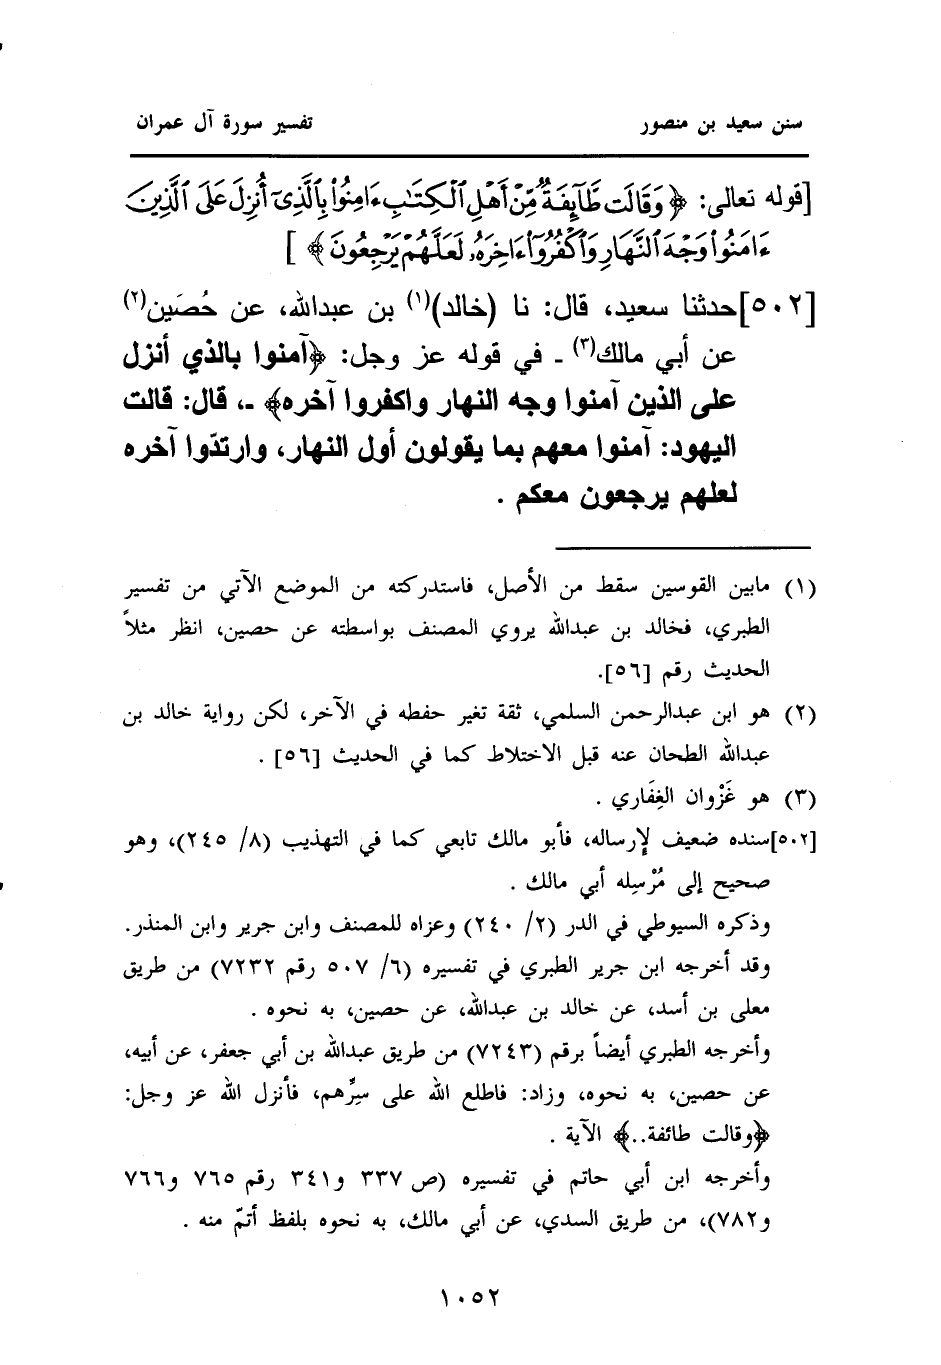 سنن سعيد بن منصور تفسير سورة آل عمران
[قوله تعالى: ﴿ وَقَالَت طَّآئِفَةٌ مِّنْ أَهْلِ ٱلْكِتَٰبِ ءَامِنُواْ بِٱلَّذِىٓ أُنزِلَ عَلَى ٱلَّذِينَ
ءَامَنُواْ وَجْهَ ٱلنَّهَارِ وَٱكْفُرُوٓاْ ءَاخِرَهُۥ لَعَلَّهُمْ يَرْجِعُونَ ﴾ ]
[٥٠٢] حدثنا سعيد، قال: نا (خالد)(١) بن عبدالله، عن حُصَين(٢)
عن أبي مالك(٣) ـ في قوله عز وجل: ﴿آمنوا بالذي أنزل
على الذين آمنوا وجه النهار واكفروا آخره﴾ ـ، قال: قالت
اليهود: آمنوا معهم بما يقولون أول النهار، وارتدّوا آخره
لعلهم يرجعون معكم .
(١) مابين القوسين سقط من الأصل، فاستدركته من الموضع الآتي من تفسير
الطبري، فخالد بن عبدالله يروي المصنف بواسطته عن حصين، انظر مثلاً
الحديث رقم [٥٦].
(٢) هو ابن عبدالرحمن السلمي، ثقة تغير حفظه في الآخر، لكن رواية خالد بن
عبدالله الطحان عنه قبل الاختلاط كما في الحديث [٥٦] .
(٣) هو غَزْوان الغِفَاري .
[٥٠٢] سنده ضعيف لإرساله، فأبو مالك تابعي كما في التهذيب (٨/ ٢٤٥)، وهو
صحيح إلى مُرْسِله أبي مالك .
وذكره السيوطي في الدر (٢/ ٢٤٠) وعزاه للمصنف وابن جرير وابن المنذر.
وقد أخرجه ابن جرير الطبري في تفسيره (٦/ ٥٠٧ رقم ٧٢٣٢) من طريق
معلى بن أسد، عن خالد بن عبدالله، عن حصين، به نحوه .
وأخرجه الطبري أيضاً برقم (٧٢٤٣) من طريق عبدالله بن أبي جعفر، عن أبيه،
عن حصين، به نحوه، وزاد: فاطلع الله على سِرِّهم، فأنزل الله عز وجل:
﴿وقالت طائفة..﴾ الآية .
وأخرجه ابن أبي حاتم في تفسيره (ص ٣٣٧ و٣٤١ رقم ٧٦٥ و٧٦٦
و٧٨٢)، من طريق السدي، عن أبي مالك، به نحوه بلفظ أتمّ منه .
١٠٥٢